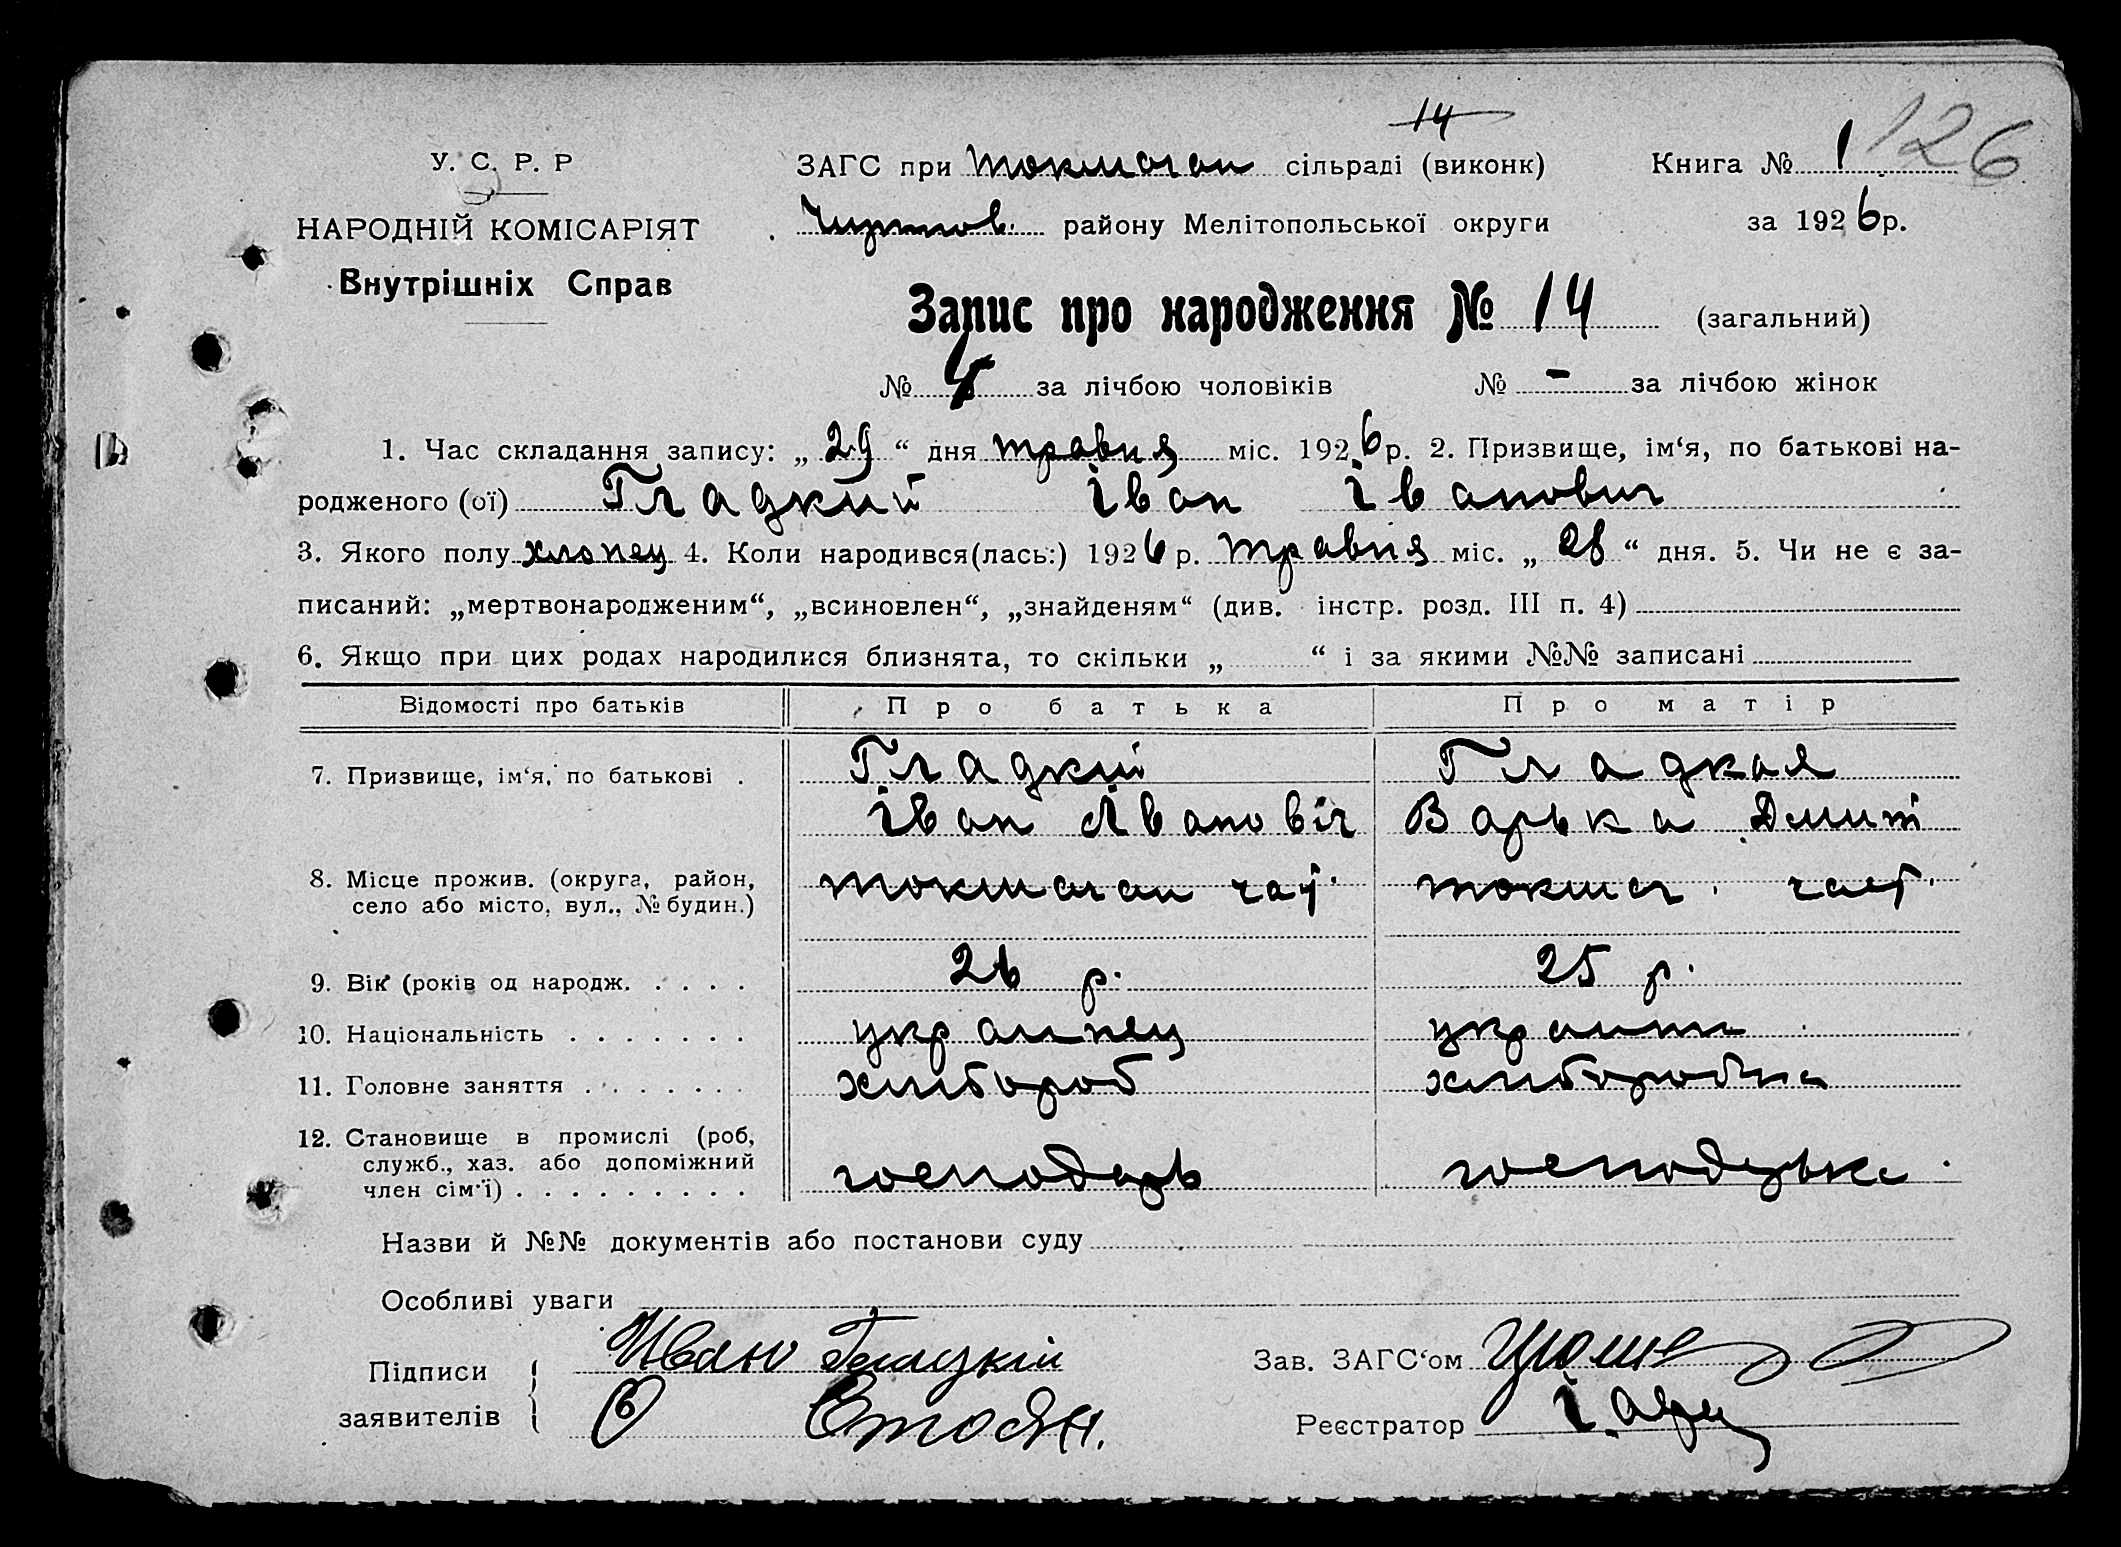 14
126
У. С. Р. Р
ЗАГС при сільраді (виконк)
Книга № 1
НАРОДНІЙ КОМІСАРІЯТ
району Мелітопольської округи
за 1926р.
Внутрішніх Справ
Запис про народження № 14 (загальний)
№ за лічбою чоловіків № - за лічбою жінок
1. Час складання запису: „ 29 “ дня травня міс. 1926р. 2. Призвище, ім‘я, по батькові на-
родженого (ої) Гладкий Іван Іванович
3. Якого полу хлопец 4. Коли народився(лась:) 1926р. травня міс. „ 28 “ дня. 5. Чи не є за-
писаний: „мертвонародженим“, „всиновлен“, „знайденям“ (див. інстр. розд. III п. 4)
6. Якщо при цих родах народилися близнята, то скільки „ “ і за якими №№ записані
Відомості про батьків
Про батька
Про матір
7. Призвище, ім‘я, по батькові .
Гладкий
Гладкая
Іван Івановіч
Варька Дмит
8. Місце прожив. (округа, район,
село або місто, вул., № будин.)
9. Вік (років од народж. . . . .
26 р.
25 р.
10. Національність . . . . . . .
украинец
украин
11. Головне заняття . . . . . . .
хлибороб
хлиборобка
12. Становище в промислі (роб,
служб., хаз. або допоміжний
член сім‘ї) . . . . . . . . .
господарь
господарька
Назви й №№ документів або постанови суду
Особливі уваги
Підписи
заявителів
Иван Гладкій
Стоян.
Зав. ЗАГС‘ом
Реєстратор